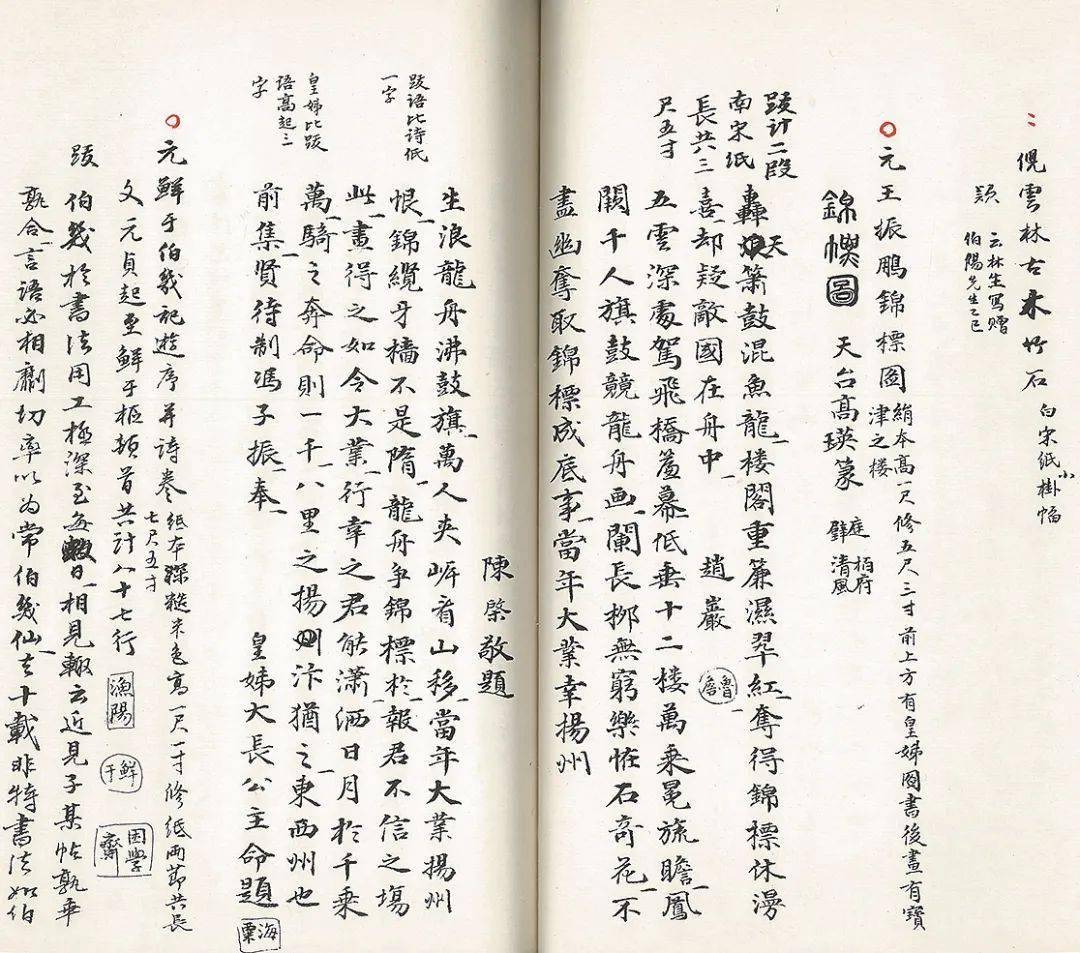 倪雲林古木竹石 白宋紙小掛幅
款 云林生寫贈
伯陽先生乙巳
元王振鵬錦標圖 絹本高一尺修五尺三寸前上方有皇姊圖書後畫有寶
津之樓
錦幖圖 天台高瑛篆 庭 栢府
清風
跋计二段
南宋纸
長共三
尺五寸
轟天簫鼓混魚龍樓閣重簾濕翠紅奪得錦標休漫
喜却疑敵國在舟中 趙巖
五雲深處駕飛橋羞幕低垂十二樓萬乘冕旒瞻鳳
闕千人旗鼓競龍舟画闌長栁無窮樂恠石奇花不
盡幽奪取錦標成底事當年大業幸揚州
陳棨敬題
生浪龍舟沸鼓旗萬人夹崕看山移當年大業揚州
恨錦纜牙檣不是隋龍舟争錦標於報君不信之塲
此畫得之如令大業行幸之君能瀟洒日月於千乘
萬騎之奔命則一千八里之揚州汴猶之東西州也
前集賢待制馮子振奉 皇姊大長公主命題
海
粟
跋语比诗低
一字
皇姊比跋
语高起三
字
元鮮于伯幾記遊序并诗卷 紙本深糙米色高一尺一寸修纸两節共長
七尺五寸
文元貞起至鮮于枢頓首共計八十七行
漁陽
鮮于
困學齋
跋 伯幾於書法用工極深至每日相見輙云近見子某帖孰乖
孰合言語必相劘切率以为常伯幾仙去十載非特書法如伯